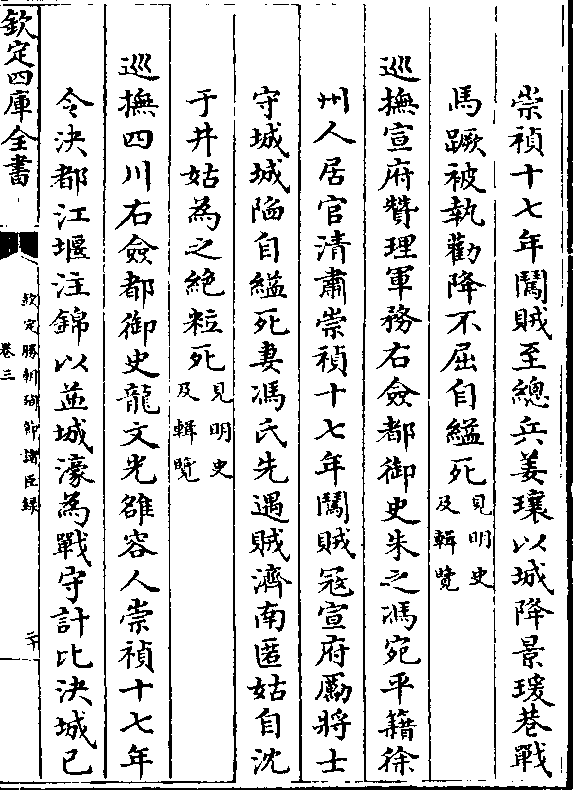 崇禎十七年闖賊至總兵姜瓖以城降景瑗巷戰
馬蹶被執勸降不屈自縊死見明史
及輯覽
巡撫宣府贊理軍務右僉都御史朱之馮宛平籍徐
州人居官清肅崇禎十七年闖賊冦宣府勵將士
守城城陷自縊死妻馮氏先遇賊濟南匿姑自沈
于井姑為之絶粒死見明史
及輯覽
巡撫四川右僉都御史龍文光雒容人崇禎十七年
令決都江堰注錦以益城濠為戰守計比決城已
欽定四庫全書
欽定勝朝殉節諸臣録
卷三
二十